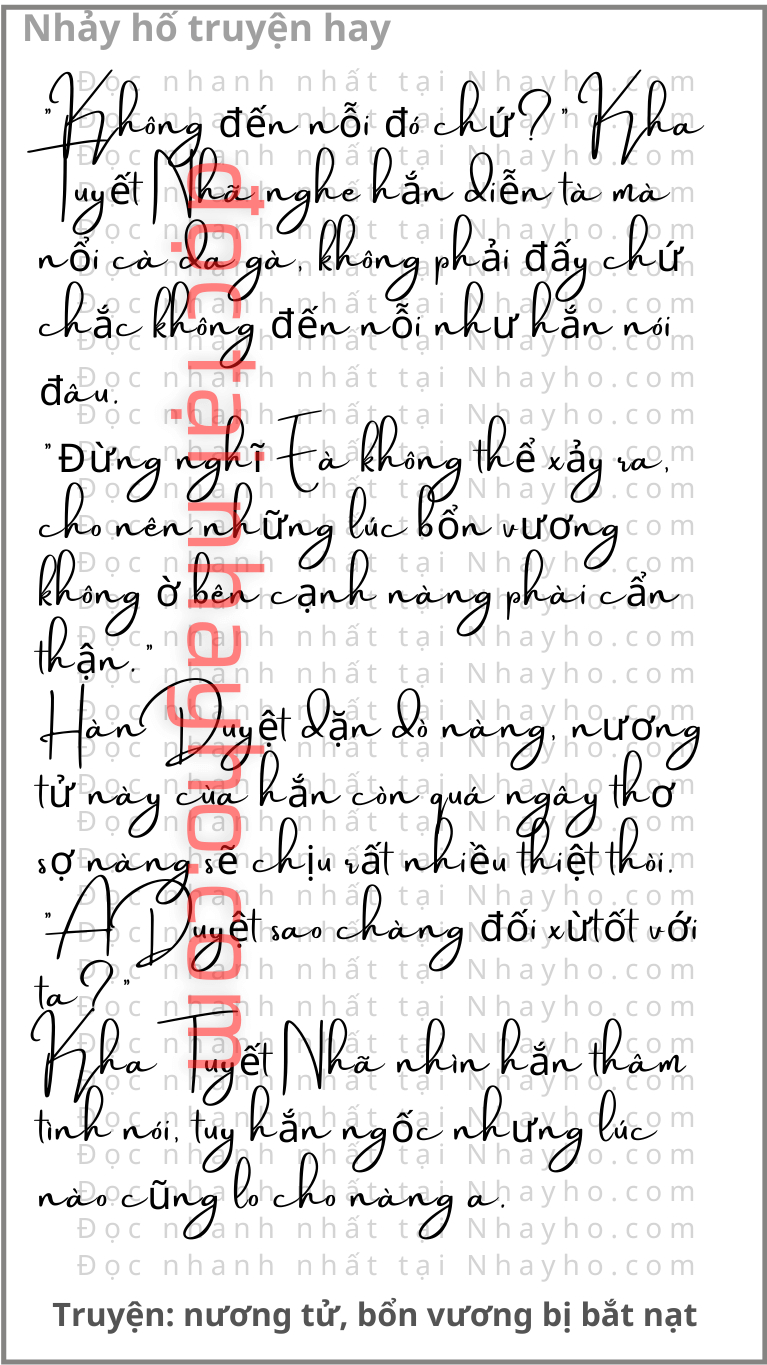 Nhảy hố truyện hay
"Không đến nỗi đó chứ?" Kha
Tuyết Nhã nghe hắn diễn tà mà
nổi cà da gà, không phải đấy chứ
chắc không đến nỗi như hắn nói
đâu.
"Đừng nghĩ Là không thể xảy ra,
cho nên những lúc bổn vương
không ờ bên cạnh nàng phài cẩn
thận."
Hàn Duyệt dặn dò nàng, nương
tử này cùa hắn còn quá ngây thơ
sợ nàng sẽ chịu rất nhiều thiệt thòi.
"A Duyệt sao chàng đối xừ tốt với
ta?"
Kha Tuyết Nhã nhìn hắn thâm
tình nói, tuy hắn ngốc nhưng lúc
nào cũng lo cho nàng a.
đọc tại nhayho.com
Đọc nhanh nhất tại Nhayho.com
Truyện: nương tử, bổn vương bị bắt nạt